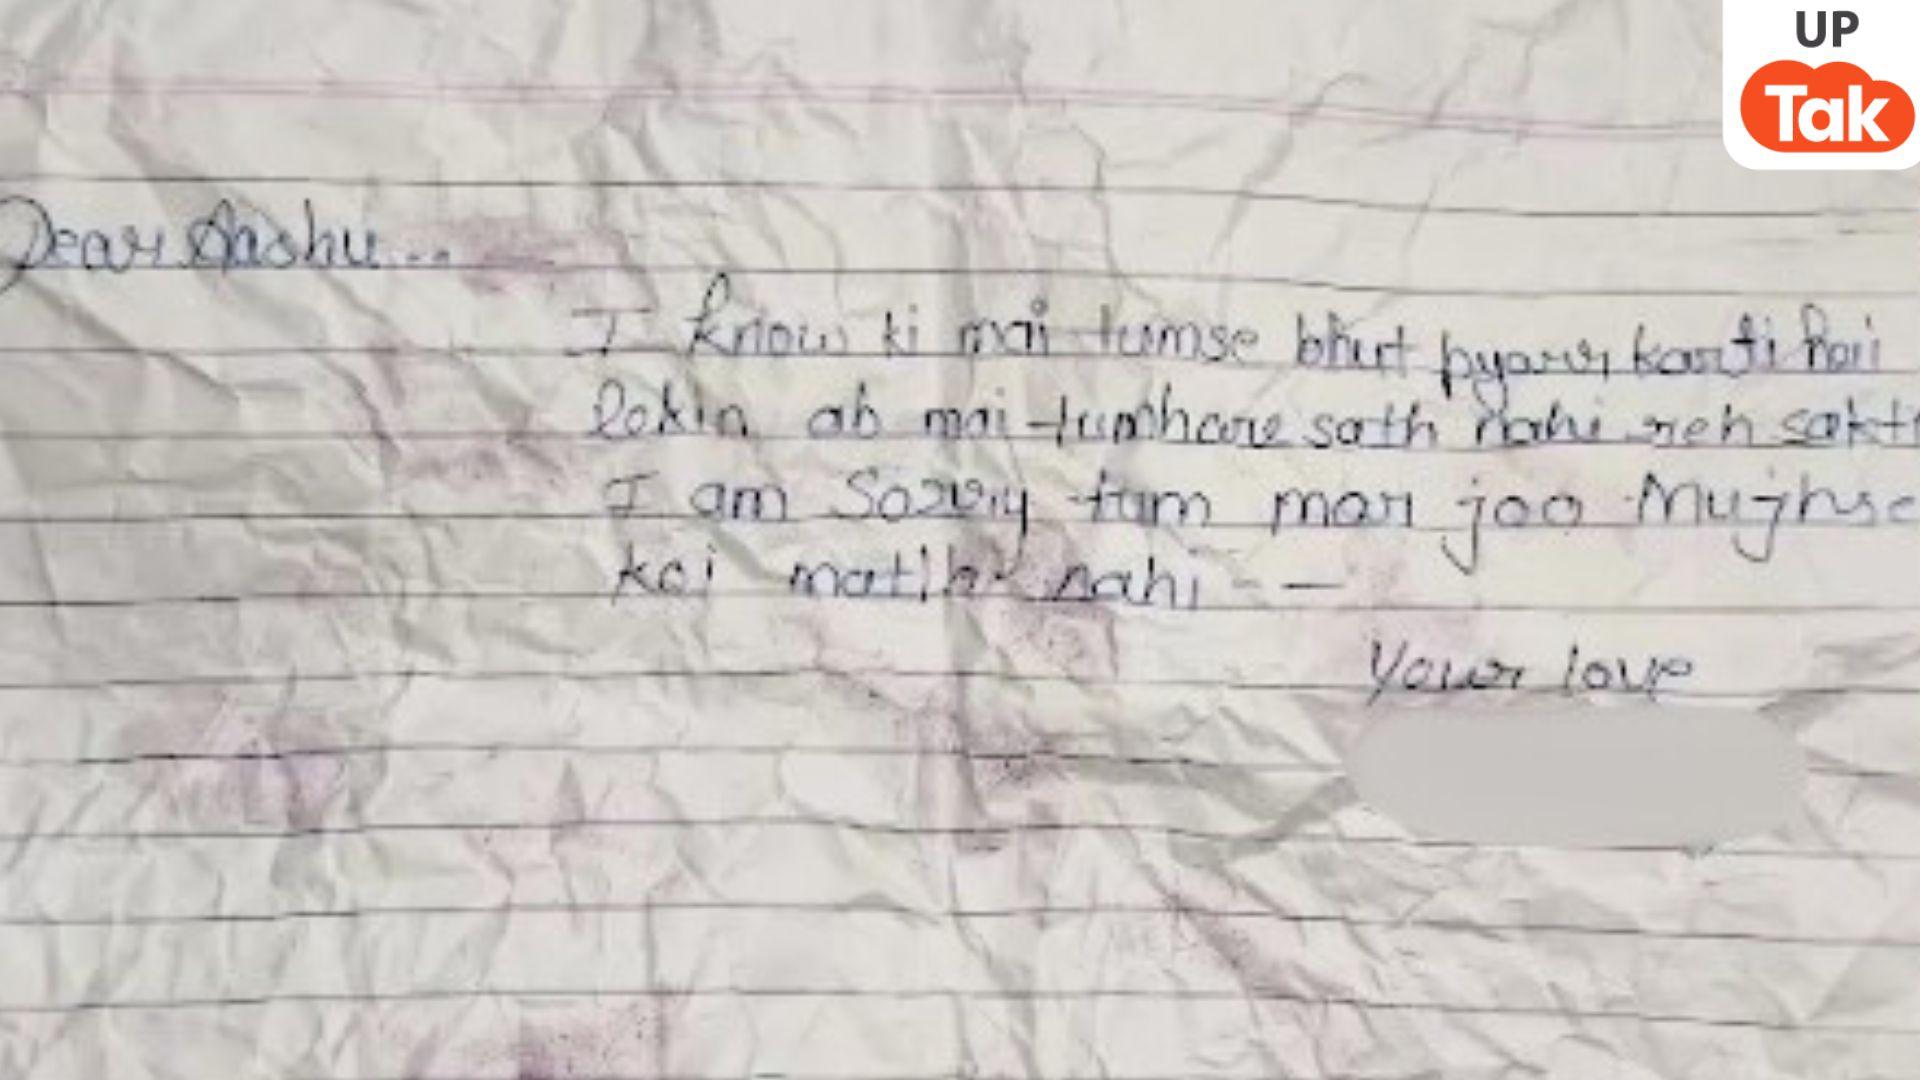 UP
Tak
Dear Aashu...
I know ki mai tumse bhut pyarr karti hai
lekin ab mai tumhare sath nahi reh sakti
I am Sorry tum mar jao Mujhse
koi matlb nahi - -
Your love